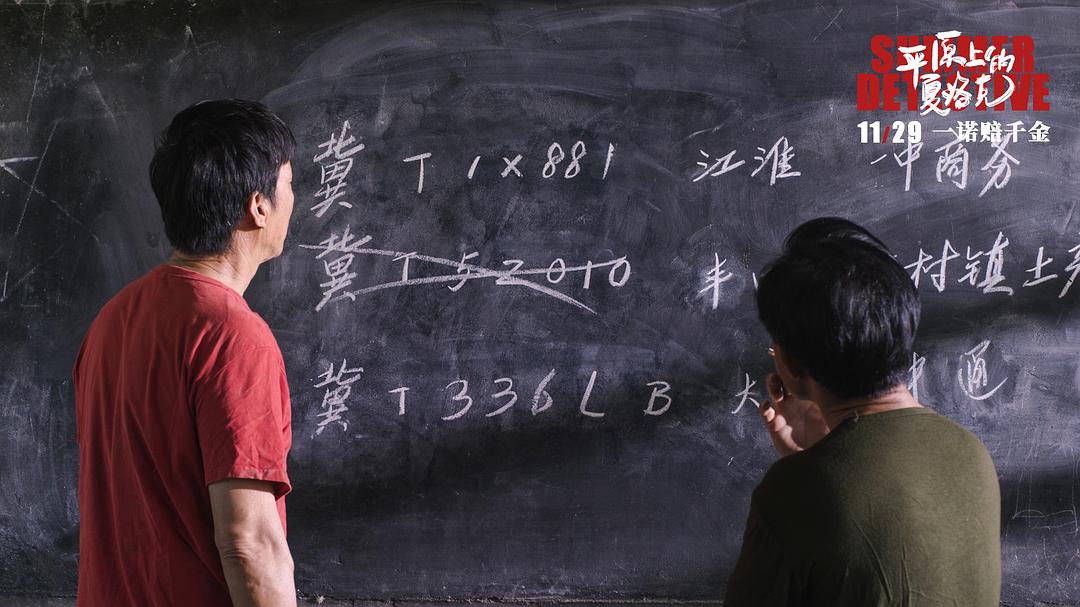 SUMMER
DETECTIVE
平原上的
夏洛克
11/29 一诺赔千金
冀 T 1 X 8 8 1 江淮 中商务
冀 T 5 2 0 1 0 丰 村镇土
冀 T 3 3 6 L B 大 中通